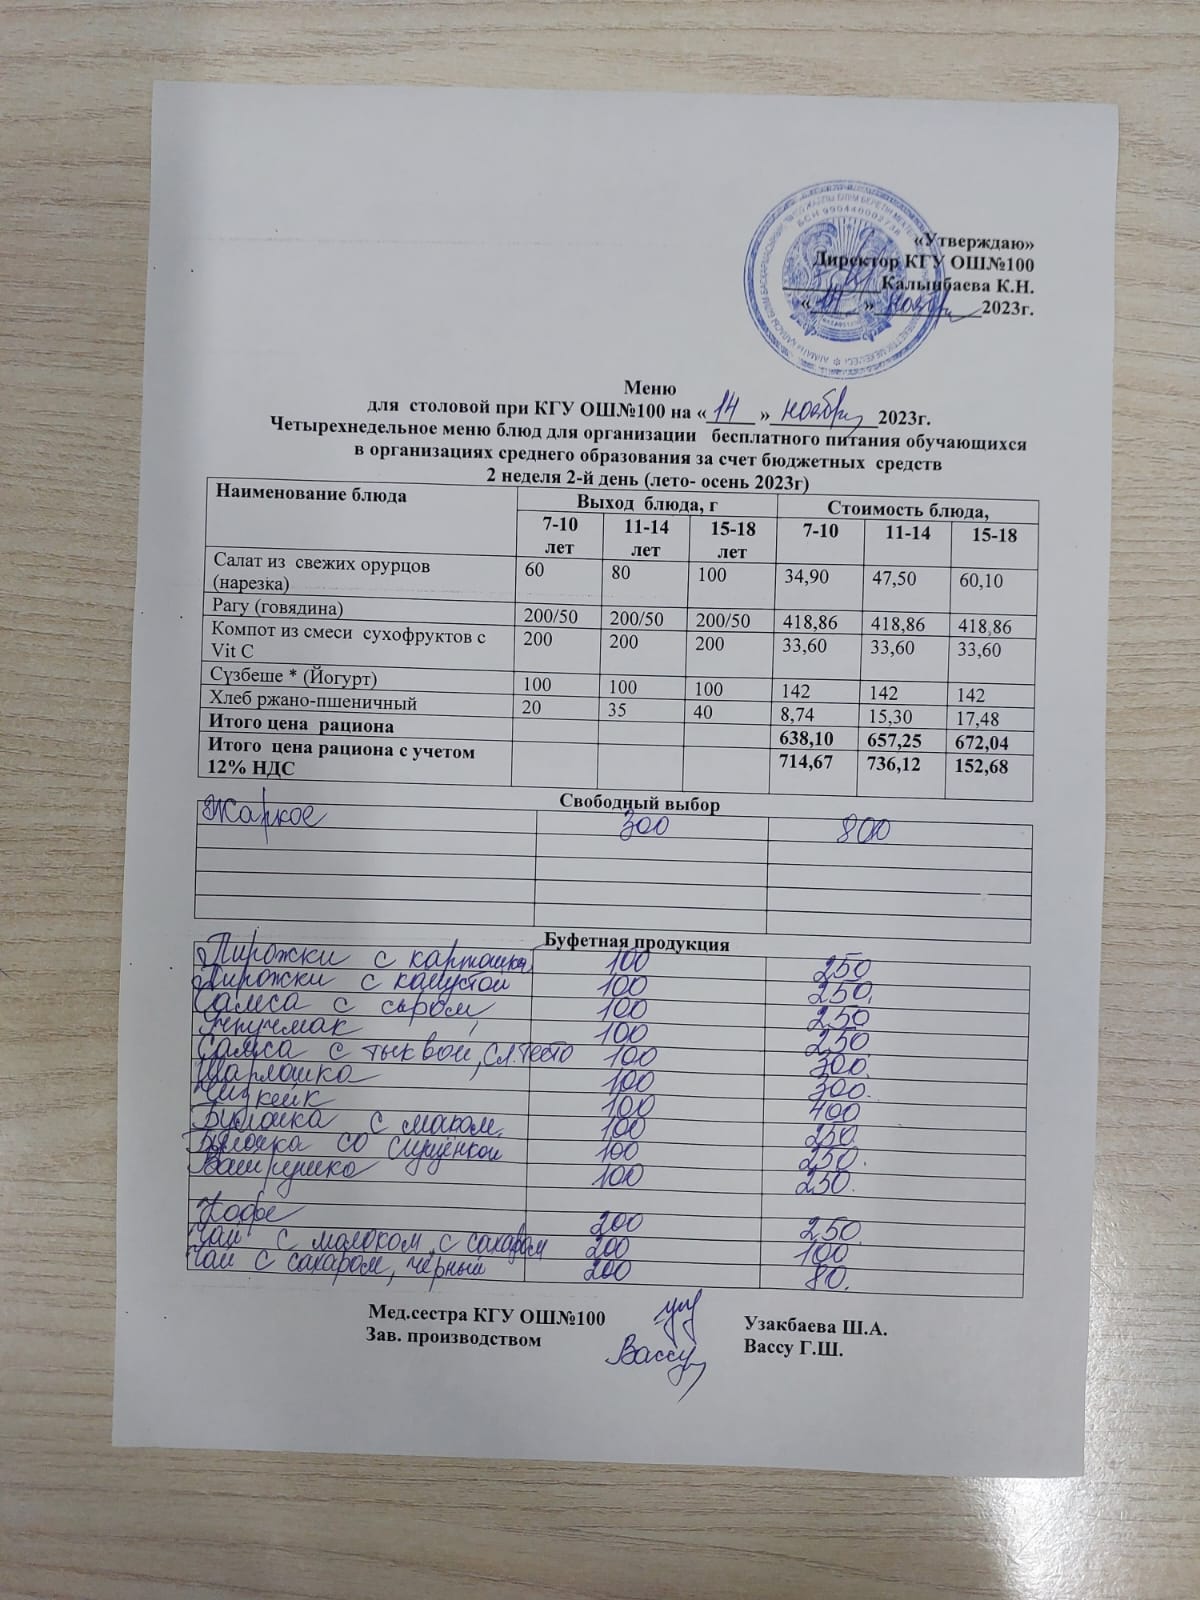 «Утверждаю»
Директор КГУ ОШ№100
Калынбаева К.Н.
«14» ноября 2023г.
БСН 990440002738
Меню
для столовой при КГУ ОШ№100 на «14» ноября 2023г.
Четырехнедельное меню блюд для организации бесплатного питания обучающихся
в организациях среднего образования за счет бюджетных средств
2 неделя 2-й день (лето- осень 2023г)
Наименование блюда Выход блюда, г Стоимость блюда,
7-10 лет 11-14 лет 15-18 лет 7-10 11-14 15-18
Салат из свежих орурцов (нарезка) 60 80 100 34,90 47,50 60,10
Рагу (говядина) 200/50 200/50 200/50 418,86 418,86 418,86
Компот из смеси сухофруктов с Vit C 200 200 200 33,60 33,60 33,60
Сүзбеше * (Йогурт) 100 100 100 142 142 142
Хлеб ржано-пшеничный 20 35 40 8,74 15,30 17,48
Итого цена рациона 638,10 657,25 672,04
Итого цена рациона с учетом 12% НДС 714,67 736,12 152,68
Свободный выбор
Жаркое 300 800
Буфетная продукция
Пирожки с картошкой 100 250
Пирожки с капустой 100 250.
Самса с сыром, 100 250
Учпучмак 100 250
Самса с тыквой, сл.тесто 100 300.
Шарлотка 100 300.
Чизкейк 100 400
Булочка с маком. 100 250.
Булочка со сгущёнкой 100 250.
Ватрушка 100 250.
Кофе 200 250.
Чай с молоком, с сахаром 200 100
Чай с сахаром, чёрный 200 80.
Мед.сестра КГУ ОШ№100 Узакбаева Ш.А.
Зав. производством Вассу Вассу Г.Ш.